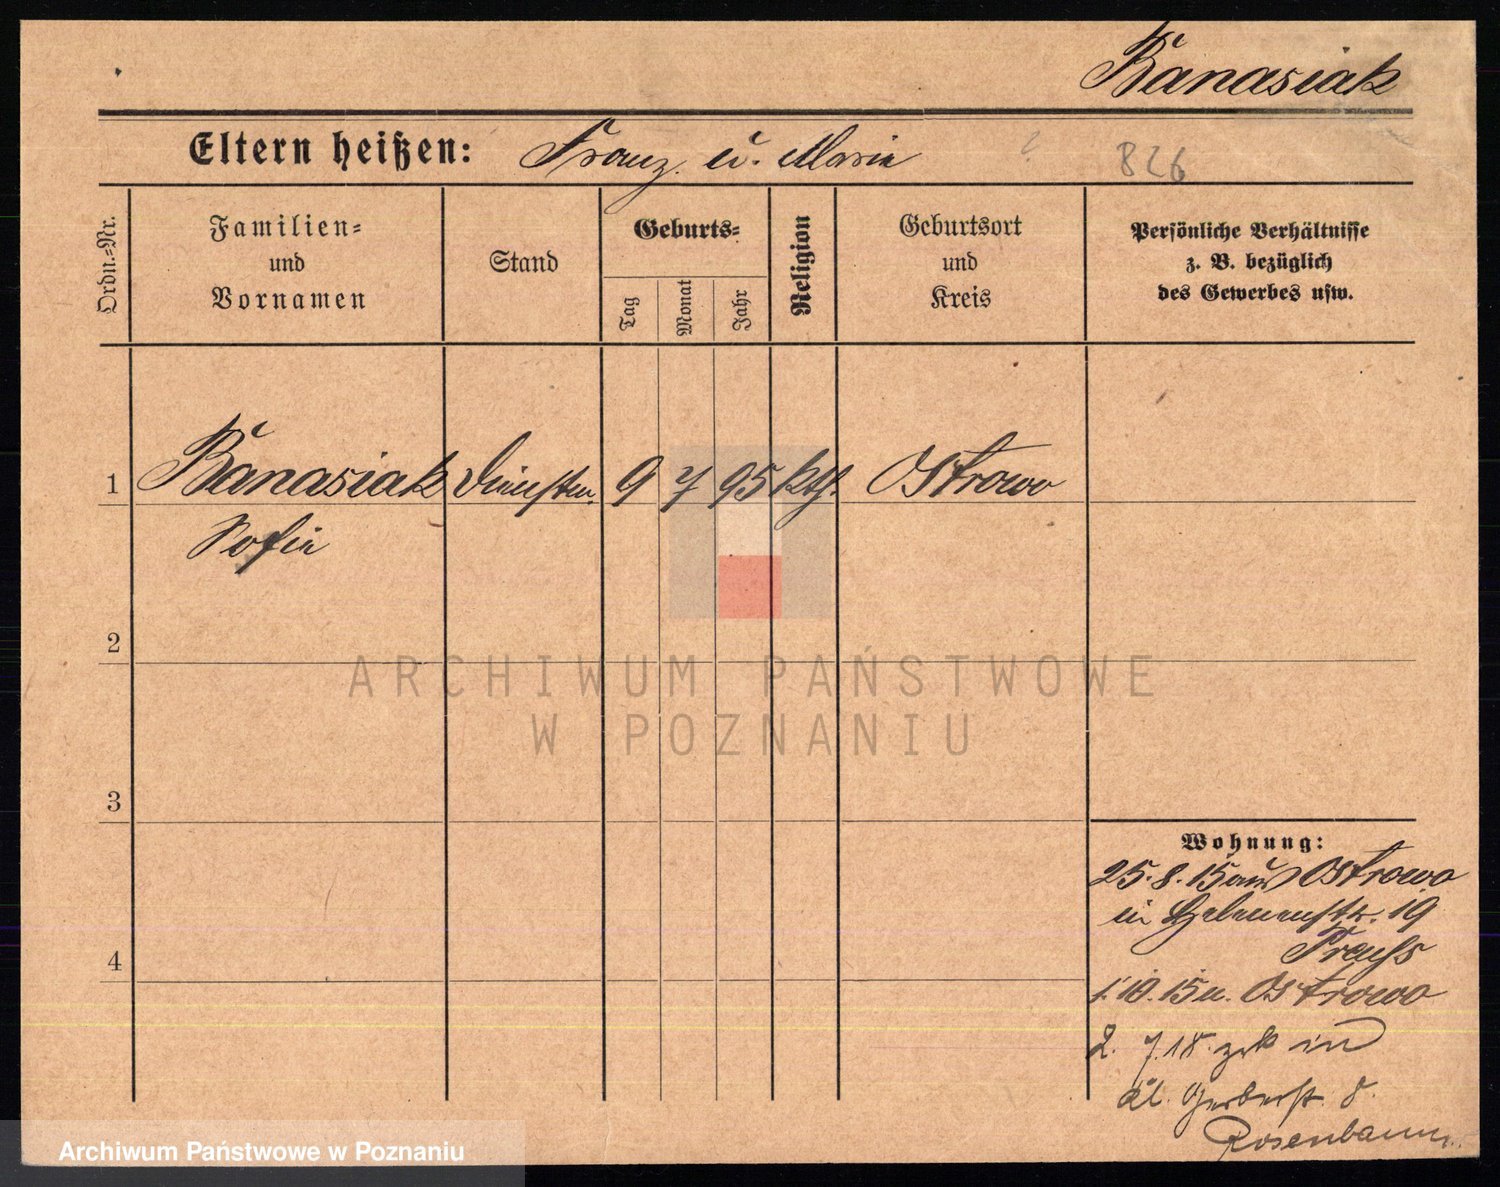 Banasiak
Eltern heißen: Franz u. Maria
826
Ordn.-Nr.
Familien-
und
Vornamen
Stand
Geburts-
Tag
Monat
Jahr
Religion
Geburtsort
und
Kreis
Persönliche Verhältnisse
z. B. bezüglich
des Gewerbes usw.
1 Banasiak Dienstm. 9 7 95 kth. Ostrowo
Sofia
2
3
4
Wohnung:
25.8.15 aus Ostrowo
in Helenenstr. 19
Preuss
1.10.15 n. Ostrowo
2. 7.18. zrk in
kl. Gerberst. 8.
Rosenbaum
ARCHIWUM PAŃSTWOWE
W POZNANIU
Archiwum Państwowe w Poznaniu